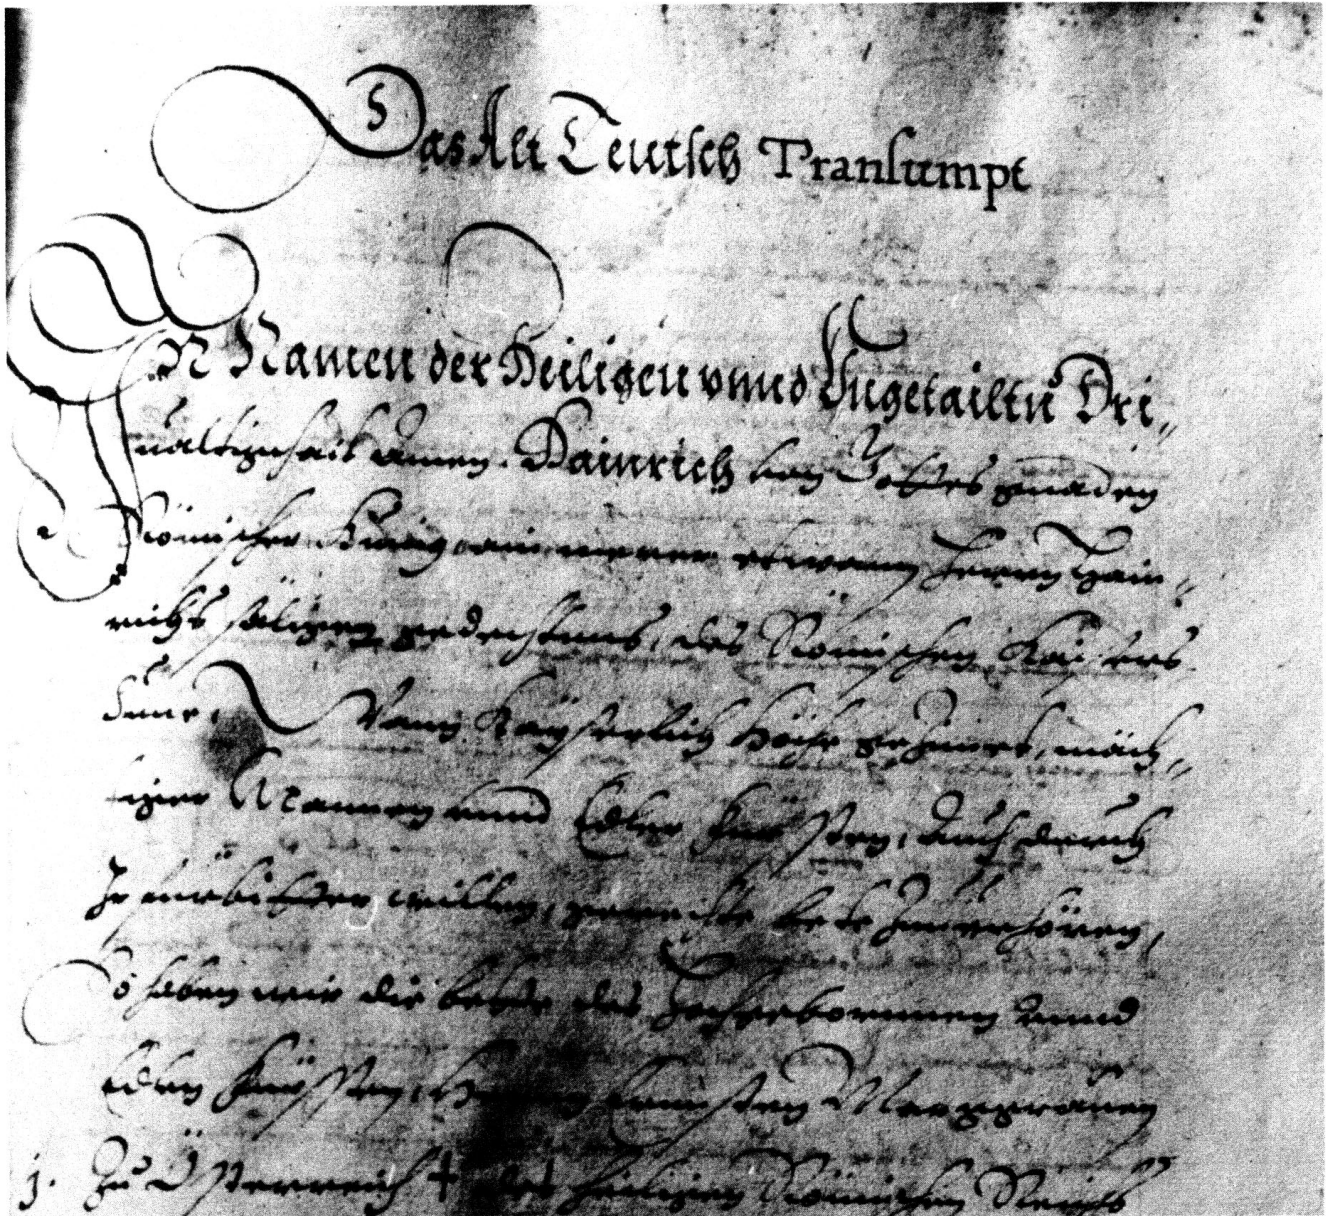 Das Alt Teutsch Transumpt
In Namen der Heiligen vnnd Vngetailtn Dri„
ualtigkhait Amen. Hainrich von Gottes gnaden
Römischer Künig, ain etwann Herren Hain„
richs säligen gedechtnus, des Römischen Kaisers
Sune, Wann Kayserlich höche gezimet, mäch„
tiger Mannen vnnd Edler Fürsten, durch
Ir willen, bete zuuerhören,
So haben wir die bethe des Hochgebornnen vnnd
Edlen Fürsten, Ernnsten Marggrauen
j. Zu Österreich † des Heiligen Römischen Reichs